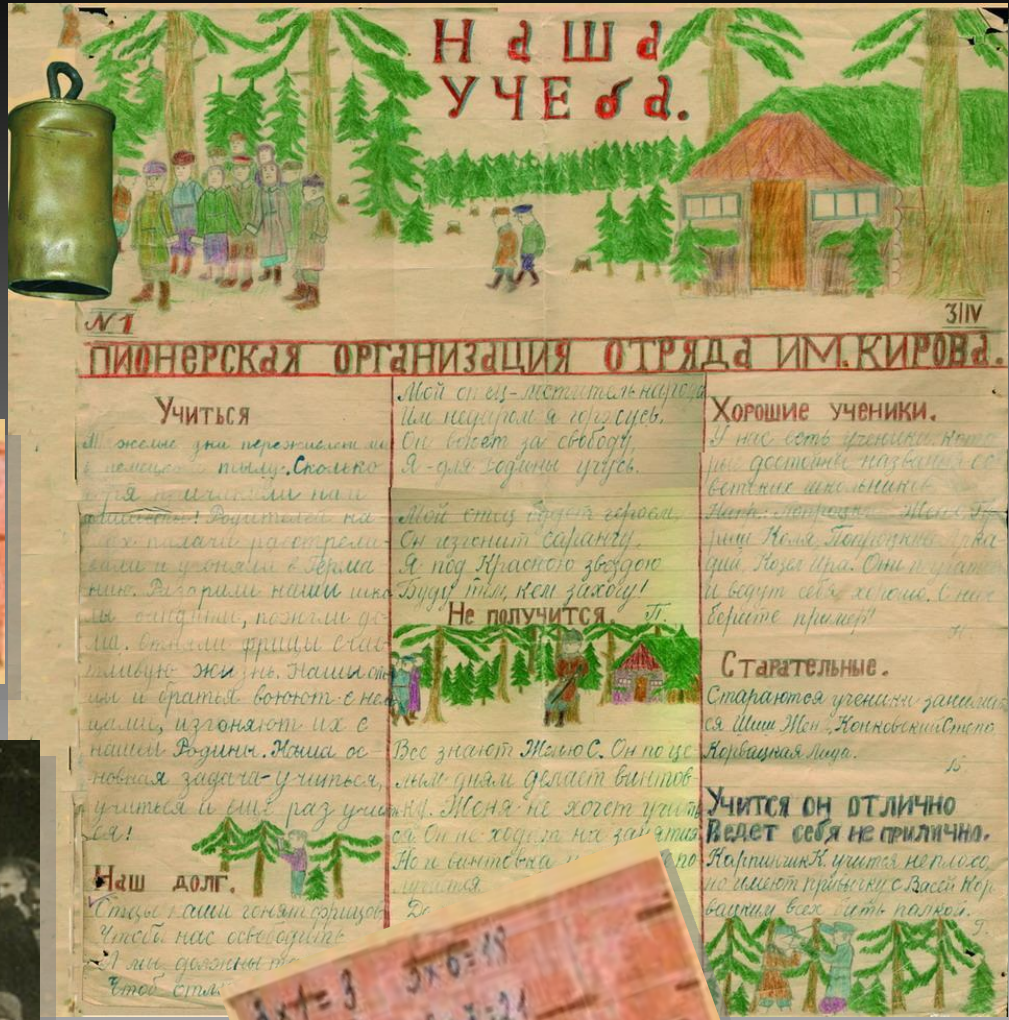 НАША
УЧЕба.
N 1
3/IV
ПИОНЕРСКАЯ ОРГАНИЗАЦИЯ ОТРЯДА ИМ. КИРОВА.
Учиться
дни
в тылу. Сколько
нам
! Родителей на
ших палачи расстрели-
вали и угоняли в Герма-
нию. Разорили наши шко
лы бандиты, пожгли до-
ма. Отняли фрицы счас-
тливую жизнь. Наши от
цы и братья воюют с нем
цами, изгоняют их с
нашей Родины. Наша ос-
новная задача-учиться,
учиться и еще раз учить
ся!
Наш долг.
Отцы наши гонят фрицов
Чтобы нас освободить
И мы должны
Чтоб
Мой отец-мститель народа
Им недаром я горжусь.
Он воюет за свободу,
Я-для Родины учусь.
Мой отец будет героем,
Он изгонит саранчу.
Я под Красною звездою
Буду тем, кем захочу!
Не получится.
Все знают Женю С. Он по це-
лым дням делает винтов
ки. Женя не хочет учить
ся. Он не ходит на занятия
Но и винтовка по
лучится
Хорошие ученики.
У нас есть ученики, кото
рые достойны названия со
ветских школьников
Напр: Женя, Гу
Коля, Арка-
дий, Козел Ира. Они учатся
и ведут себя хорошо. С них
берите пример!
Старательные.
Стараются ученики занимат
ся Шиш Жен, Конковский Степа
Корвацкая Лида.
Учится он отлично
Ведет себя не прилично.
К. учится неплохо,
но имеют привычку с Васей Кор
вацким всех бить палкой.
Г.
3x1=3 3x6=18